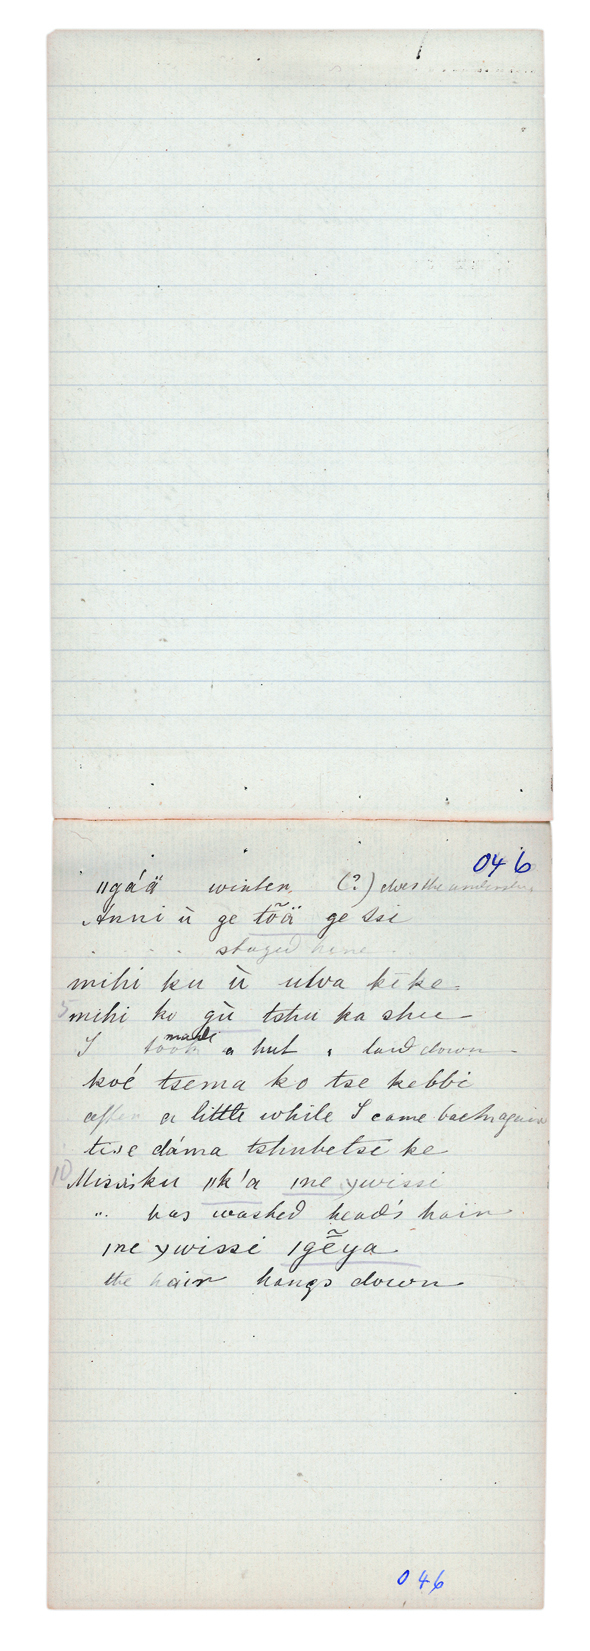 046
ǁgáä winter (?) does the understand
Anni ù ge tõä ge ssi
stayed here
mihi ku ù utva kēke-
5 mihi ko gù tshu ka shu-
I took made a hut, laid down
koé tsema ko tse kebbi
after a little while I came back again
tise dáma tshubetse ke
10 Missisku ǁk'a ɪne ywissi
" has washed head's hair
ɪne ywissi ɪgẽya
the hair hangs down
046